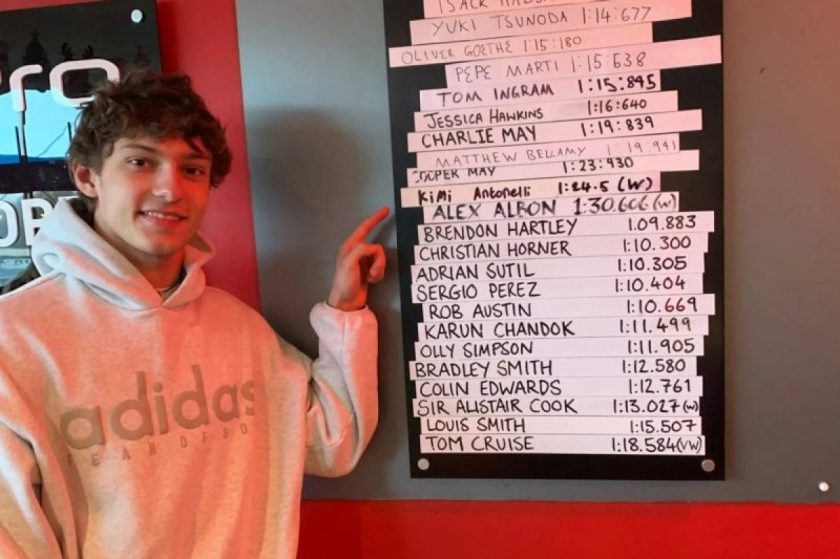 pro
adidas
FEAR OF
YUKI TSUNODA 1:14:677
OLIVER GOETHE 1:15:180
PEPE MARTI 1:15:638
TOM INGRAM 1:15:845
JESSICA HAWKINS 1:16:640
CHARLIE MAY 1:19:839
MATTHEW BELLAMY 1:19.941
COOPER MAY 1:23:930
KiMi Antonelli 1:24.5 (W)
ALEX ALBON 1:30.606 (W)
BRENDON HARTLEY 1.09.883
CHRISTIAN HORNER 1:10.300
ADRIAN SUTIL 1:10.305
SERGIO PEREZ 1:10.404
ROB AUSTIN 1:10.669
KARUN CHANDOK 1:11.499
OLLY SIMPSON 1:11.905
BRADLEY SMITH 1:12.580
COLIN EDWARDS 1:12.761
SIR ALISTAIR COOK 1:13.027 (W)
LOUIS SMITH 1:15.507
TOM CRUISE 1:18.584 (VW)